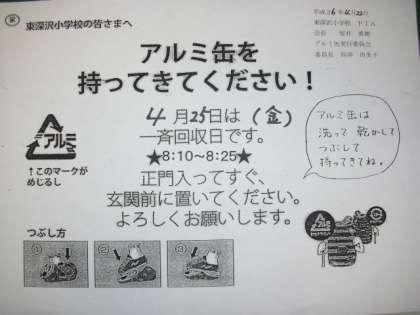 家
東深沢小学校の皆さまへ
平成26年4月22日
東深沢小学校 PTA
アルミ缶を
持ってきてください！
4月25日は（金）
一斉回収日です。
★8:10～8:25★
正門入ってすぐ、
玄関前に置いてください。
よろしくお願いします。
アルミ
↑このマークが
めじるし
アルミ缶は
洗って乾かして
つぶして
持ってきてね。
つぶし方
①
②
③